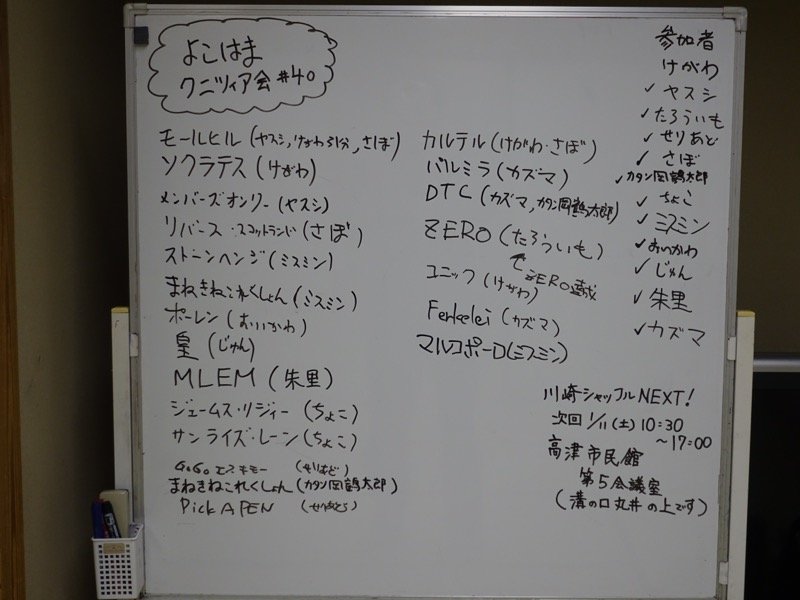 よこはま
クニツィア会 #40
モールヒル (ヤスシ, けがわ, さぼ)
ソクラテス (けがわ)
メンバーズオンリー (ヤスシ)
リバース・スコットランド (さぼ)
ストーンヘンジ (ミスミン)
まねきねこれくしょん (ミスミン)
ポーレン (おいかわ)
皇 (じゅん)
MLEM (朱里)
ジェームス・リジィー (ちょこ)
サンライズ・レーン (ちょこ)
GoGo エスキモー
まねきねこれくしょん (カタン岡鶴太郎)
Pick A PEN
カルテル (けがわ・さぼ)
パルミラ (カズマ)
DTC (カズマ, カタン岡鶴太郎)
ZERO (たろういも)
ZERO遊戯
ユニック (けがわ)
Ferkelei (カズマ)
マルコポーロ (ミスミン)
参加者
けがわ
✓ ヤスシ
✓ たろういも
✓ せりあど
✓ さぼ
✓ カタン岡鶴太郎
✓ ちょこ
✓ ミスミン
✓ おいかわ
✓ じゅん
✓ 朱里
✓ カズマ
川崎シャッフル NEXT!
次回 1/11 (土) 10:30
〜17:00
高津市民館
第5会議室
(溝の口丸井の上です)